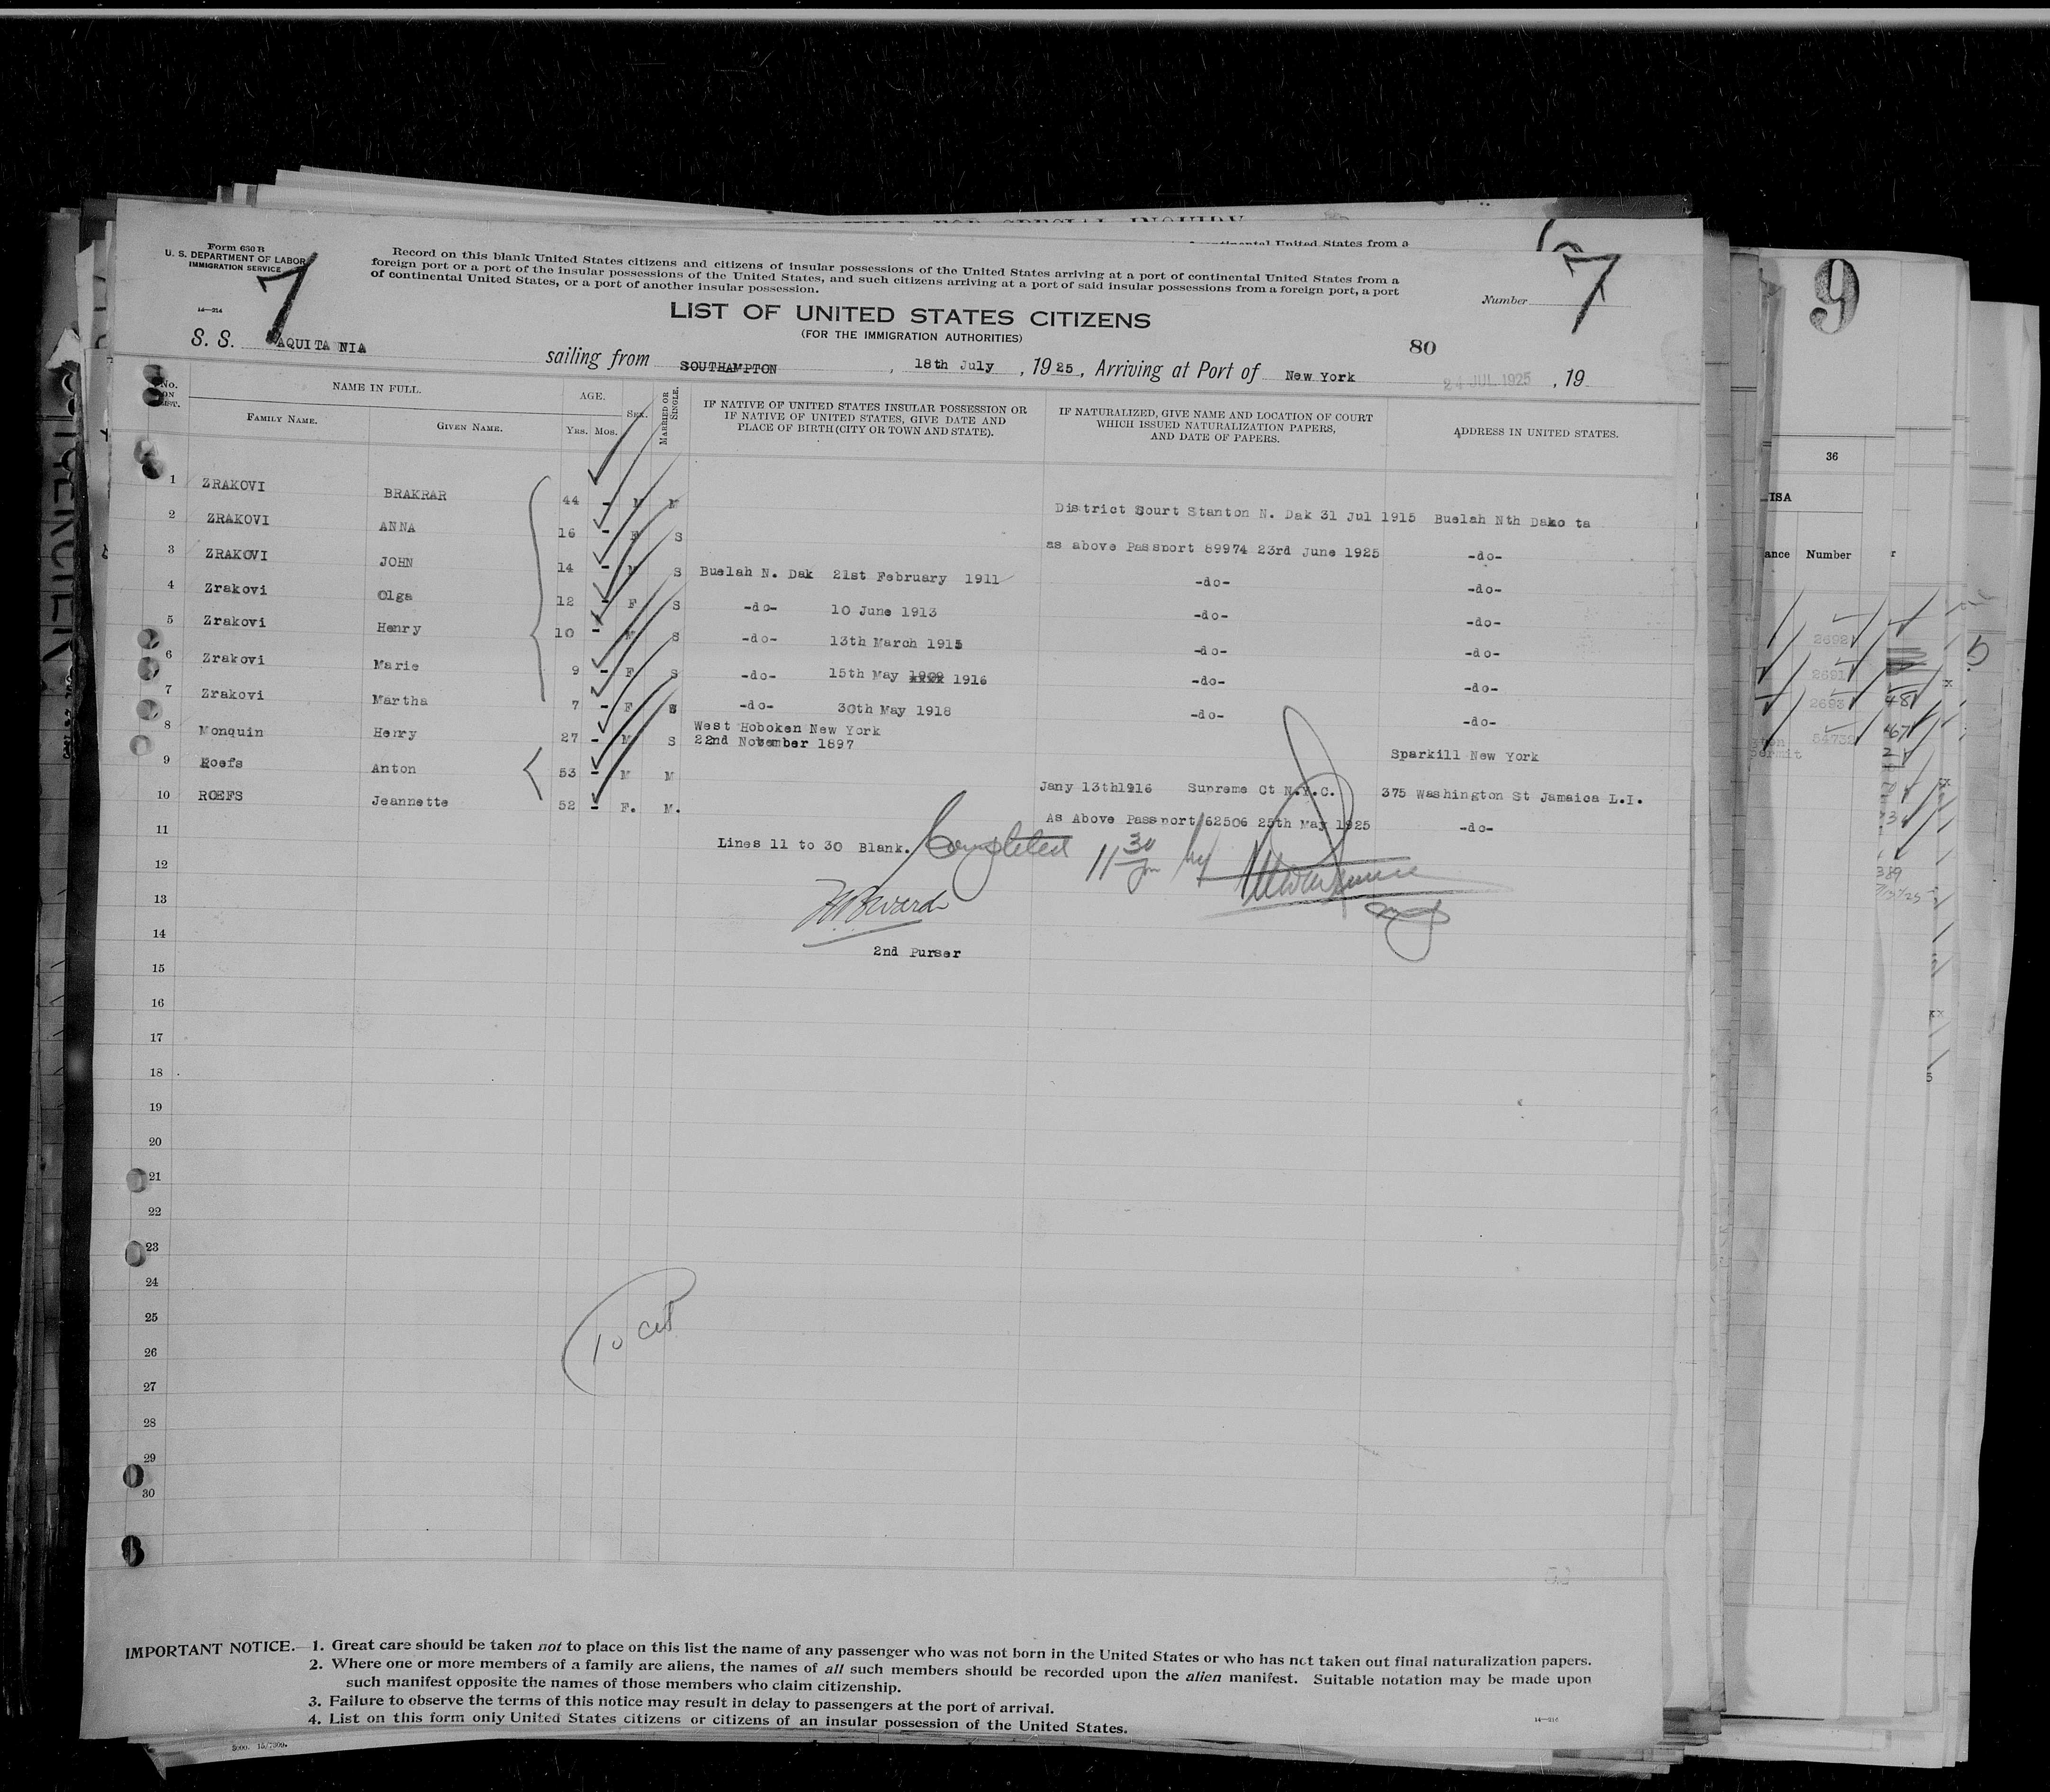 Form 630 B
U. S. DEPARTMENT OF LABOR
IMMIGRATION SERVICE
14—214
7
Record on this blank United States citizens and citizens of insular possessions of the United States arriving at a port of continental United States from a
foreign port or a port of the insular possessions of the United States, and such citizens arriving at a port of said insular possessions from a foreign port, a port
of continental United States, or a port of another insular possession.
Number 7
LIST OF UNITED STATES CITIZENS
(FOR THE IMMIGRATION AUTHORITIES)
80
S. S. AQUITANIA sailing from SOUTHAMPTON, 18th July, 1925, Arriving at Port of New York 24 JUL 1925, 19
No. ON LIST. NAME IN FULL. AGE. SEX. MARRIED OR SINGLE. IF NATIVE OF UNITED STATES INSULAR POSSESSION OR IF NATIVE OF UNITED STATES, GIVE DATE AND PLACE OF BIRTH (CITY OR TOWN AND STATE). IF NATURALIZED, GIVE NAME AND LOCATION OF COURT WHICH ISSUED NATURALIZATION PAPERS, AND DATE OF PAPERS. ADDRESS IN UNITED STATES.
FAMILY NAME. GIVEN NAME. YRS. MOS.
1 ZRAKOVI BRAKRAR 44 - M M District Court Stanton N. Dak 31 Jul 1915 Buelah Nth Dako ta
2 ZRAKOVI ANNA 16 - F S as above Passport 89974 23rd June 1925 -do-
3 ZRAKOVI JOHN 14 - M S Buelah N. Dak 21st February 1911 -do- -do-
4 Zrakovi Olga 12 - F S -do- 10 June 1913 -do- -do-
5 Zrakovi Henry 10 - M S -do- 13th March 1915 -do- -do-
6 Zrakovi Marie 9 - F S -do- 15th May 1909 1916 -do- -do-
7 Zrakovi Martha 7 - F S -do- 30th May 1918 -do- -do-
8 Monquin Henry 27 - M S West Hoboken New York 22nd November 1897 Sparkill New York
9 Roefs Anton 53 - M M Jany 13th1916 Supreme Ct N.Y.C. 375 Washington St Jamaica L.I.
10 ROEFS Jeannette 52 - F. M. As Above Passport 62506 25th May 1925 -do-
11 Lines 11 to 30 Blank. Completed 11 30 by
12
13
14 2nd Purser
15
16
17
18
19
20
21
22
23
24
25
10 cit
26
27
28
29
30
IMPORTANT NOTICE.—1. Great care should be taken not to place on this list the name of any passenger who was not born in the United States or who has not taken out final naturalization papers.
2. Where one or more members of a family are aliens, the names of all such members should be recorded upon the alien manifest. Suitable notation may be made upon
such manifest opposite the names of those members who claim citizenship.
3. Failure to observe the terms of this notice may result in delay to passengers at the port of arrival.
4. List on this form only United States citizens or citizens of an insular possession of the United States.
14—216
9
36
ISA
ance Number
2692
2691
2693
54732